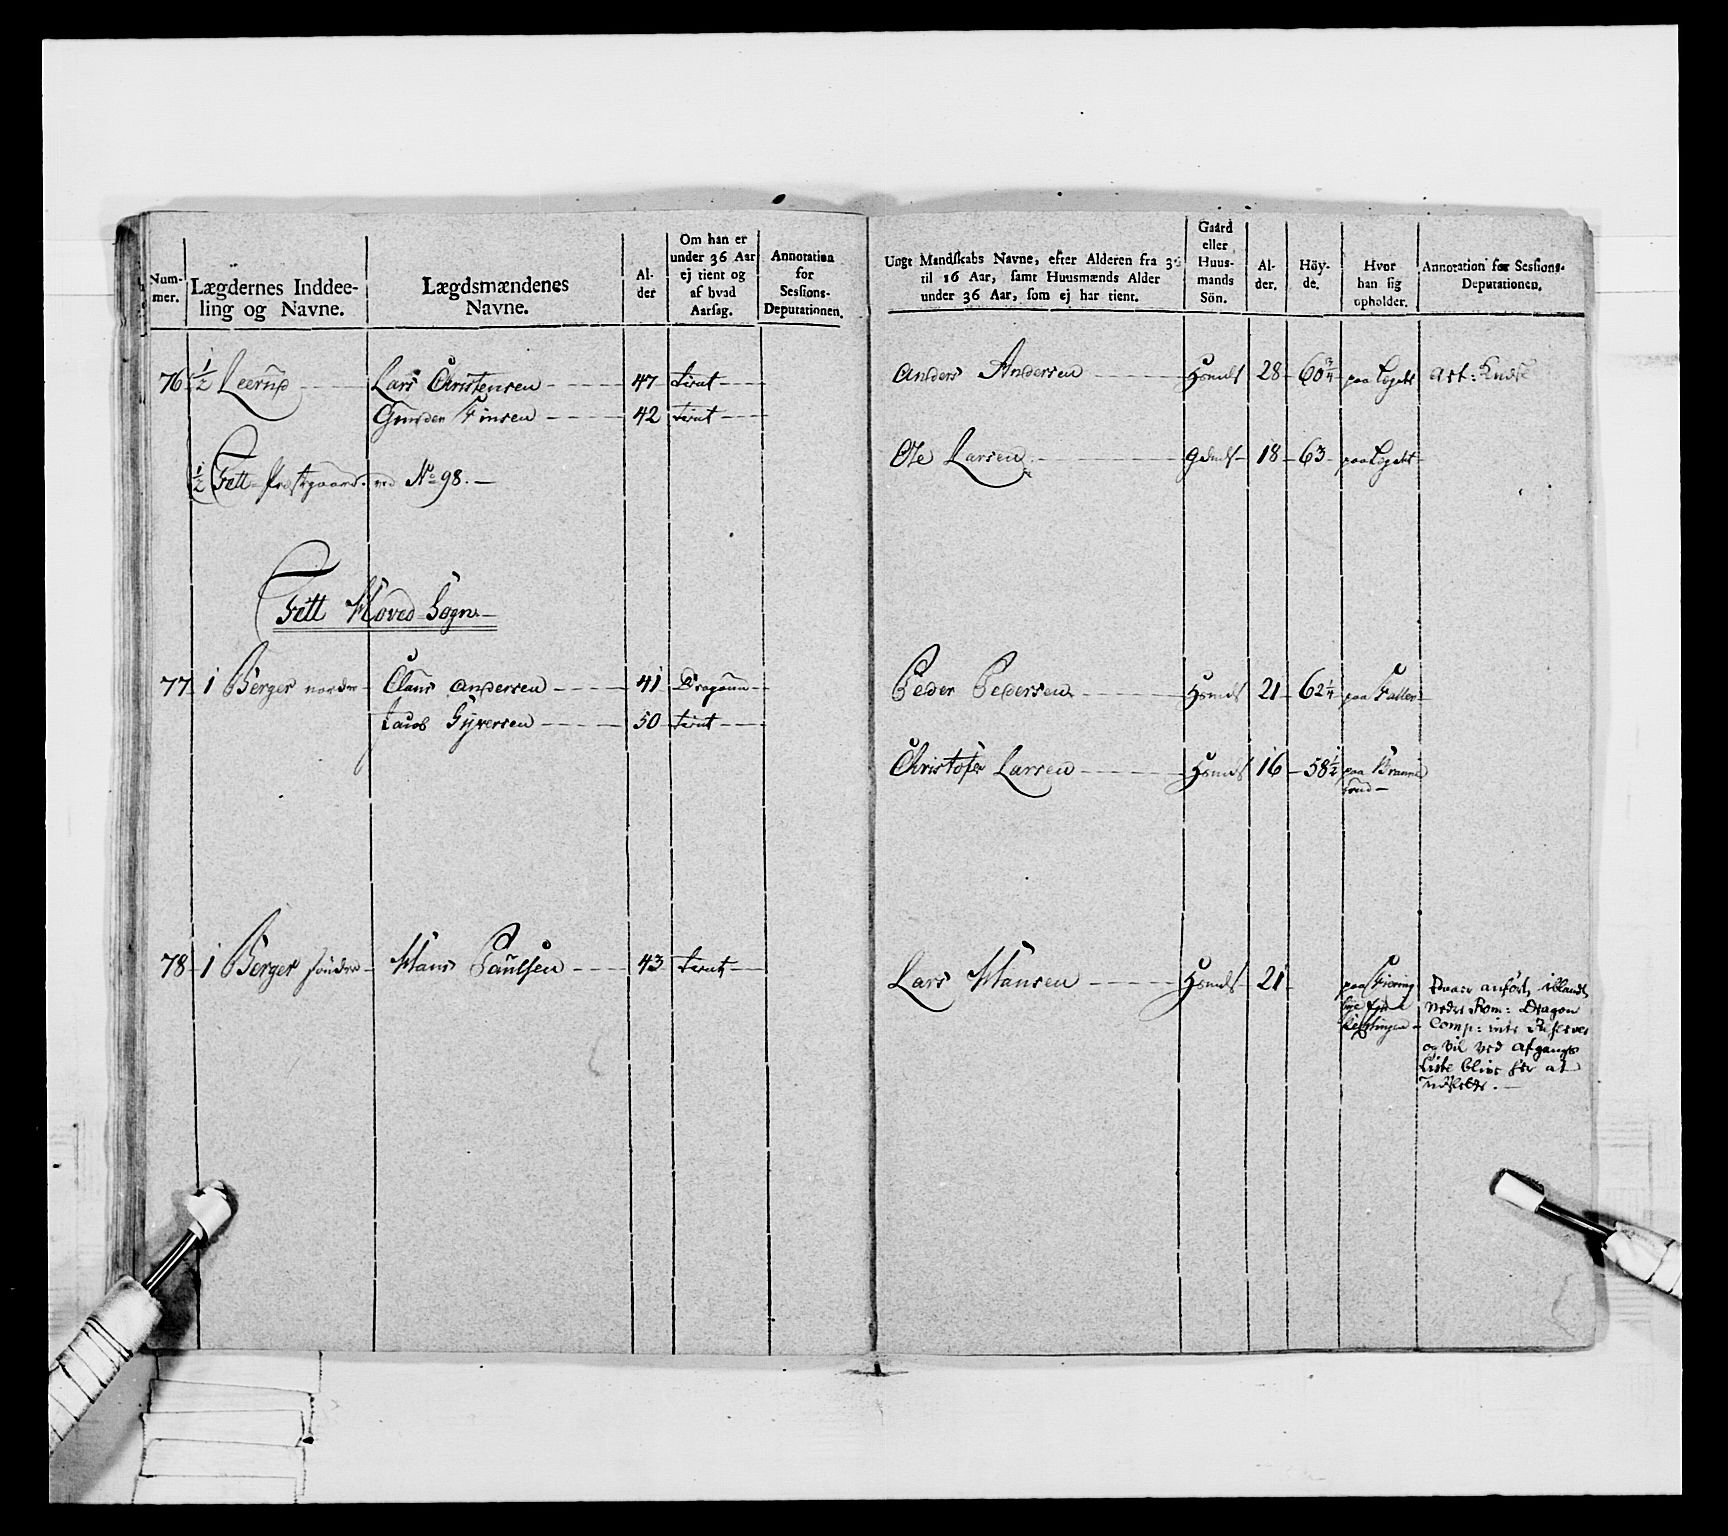 Num-
mer.
Lægdernes Inddee-
ling og Navne.
Lægdsmændenes
Navne.
Al-
der
Om han er
under 36 Aar
ej tient og
af hvad
Aarsag.
Annotation
for
Sessions-
Deputationen.
76 ½ Leerud Lars Christensen 47 tient
Gunder Finsen 42 tient
½ Fett Præstegaard ved No 98.
Fett Hoved Sogn
77 1 Berger nordre Claus Andersen 41 Dragoun
Jacob Syversen 50 tient
78 1 Berger søndre Hans Paulsen 43 tient
Ungt Mandskabs Navne, efter Alderen fra 36
til 16 Aar, samt Huusmænds Alder
under 36 Aar, som ej har tient.
Gaard
eller
Huus-
mands
Sön.
Al-
der.
Höy-
de.
Hvor
han sig
opholder.
Annotation for Sessions-
Deputationen.
Anders Andersen 28 60¾ paa Læget Art: Kudsk
Ole Larsen 18 63 paa Læget
Peder Pedersen 21 62¼ paa
Christofer Larsen 16 58½ paa
Lars Hansen 21 paa
anført iblandt
Nedre Rom: Dragon
Comp: Reserver
og vil ved Afgangs
Liste blive at
udslette.